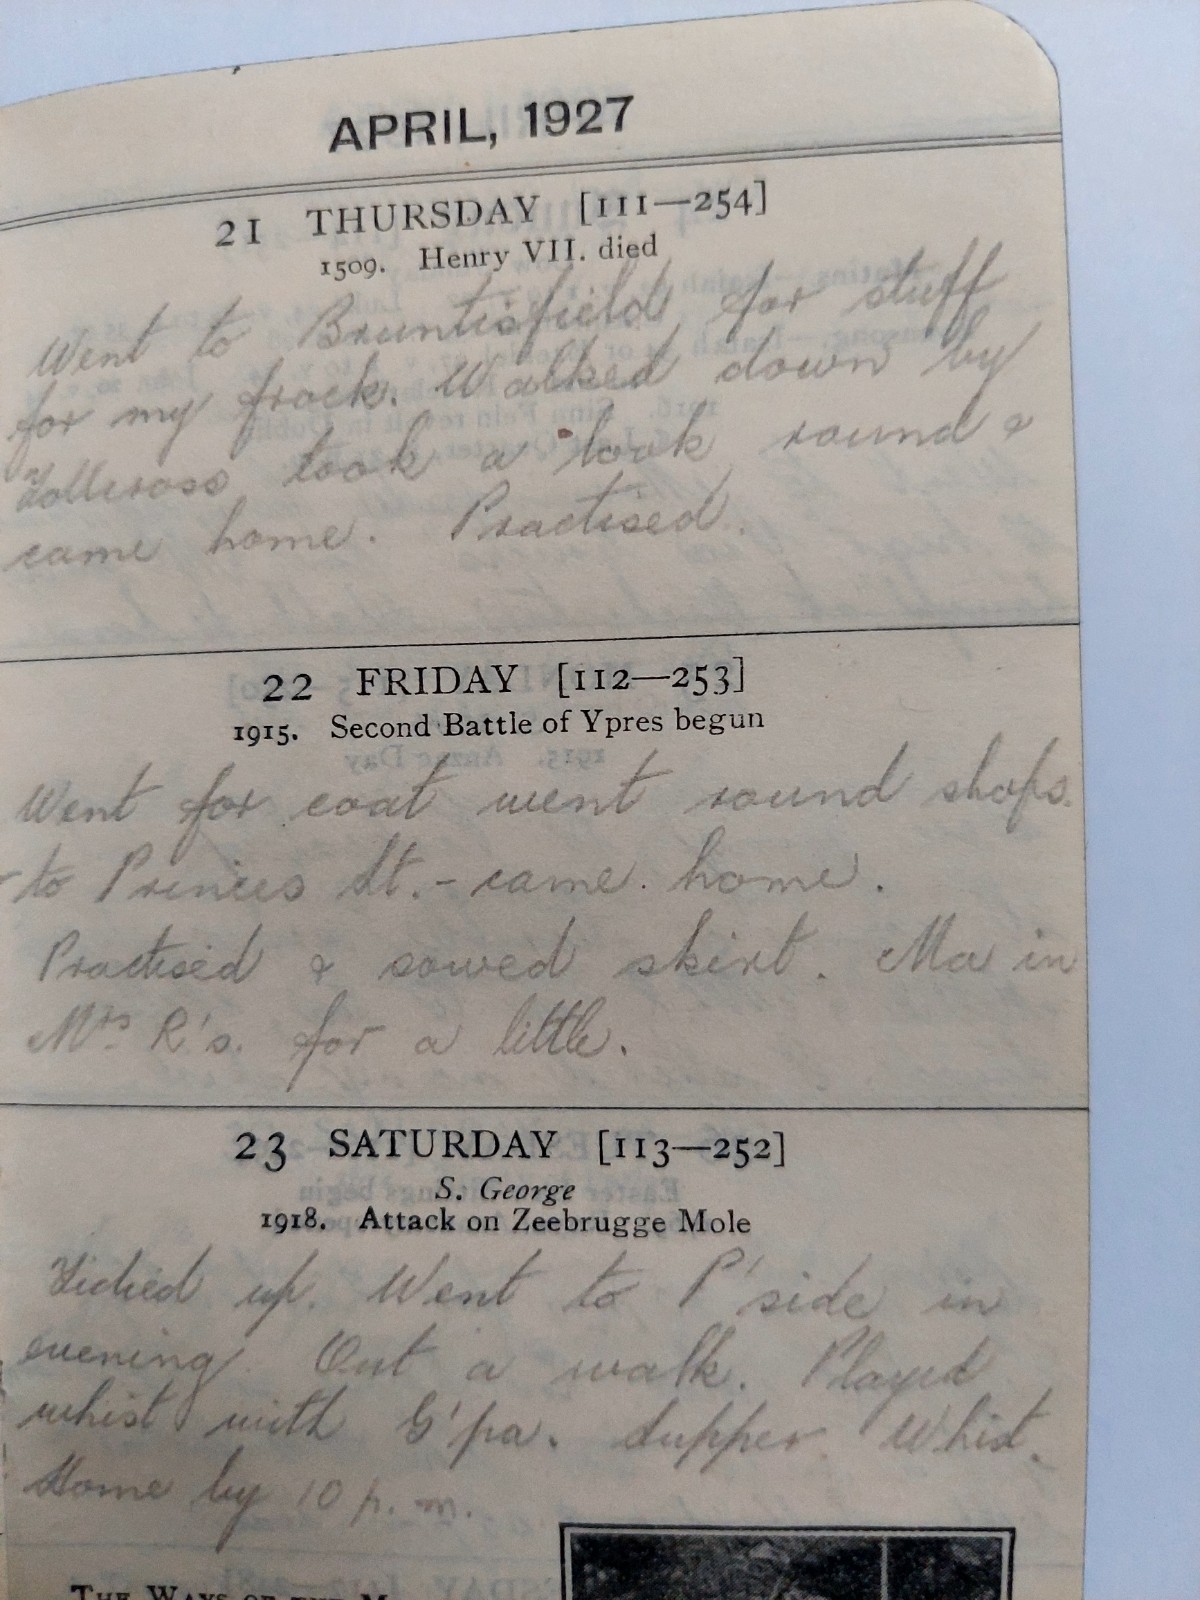 APRIL, 1927
21 THURSDAY [111—254]
1509. Henry VII. died
Went to Bruntisfield for stuff
for my frock. Walked down by
Tollcross took a look round &
came home. Practised.
22 FRIDAY [112—253]
1915. Second Battle of Ypres begun
Went for coat went round shops.
to Princes St. - came. home.
Practised & sowed skirt. Ma in
Mrs R's. for a little.
23 SATURDAY [113—252]
S. George
1918. Attack on Zeebrugge Mole
Tidied up. Went to P'side in
evening. Out a walk. Played
whist with G'pa. Supper. Whist.
Home by 10 p.m.
THE WAYS OF THE